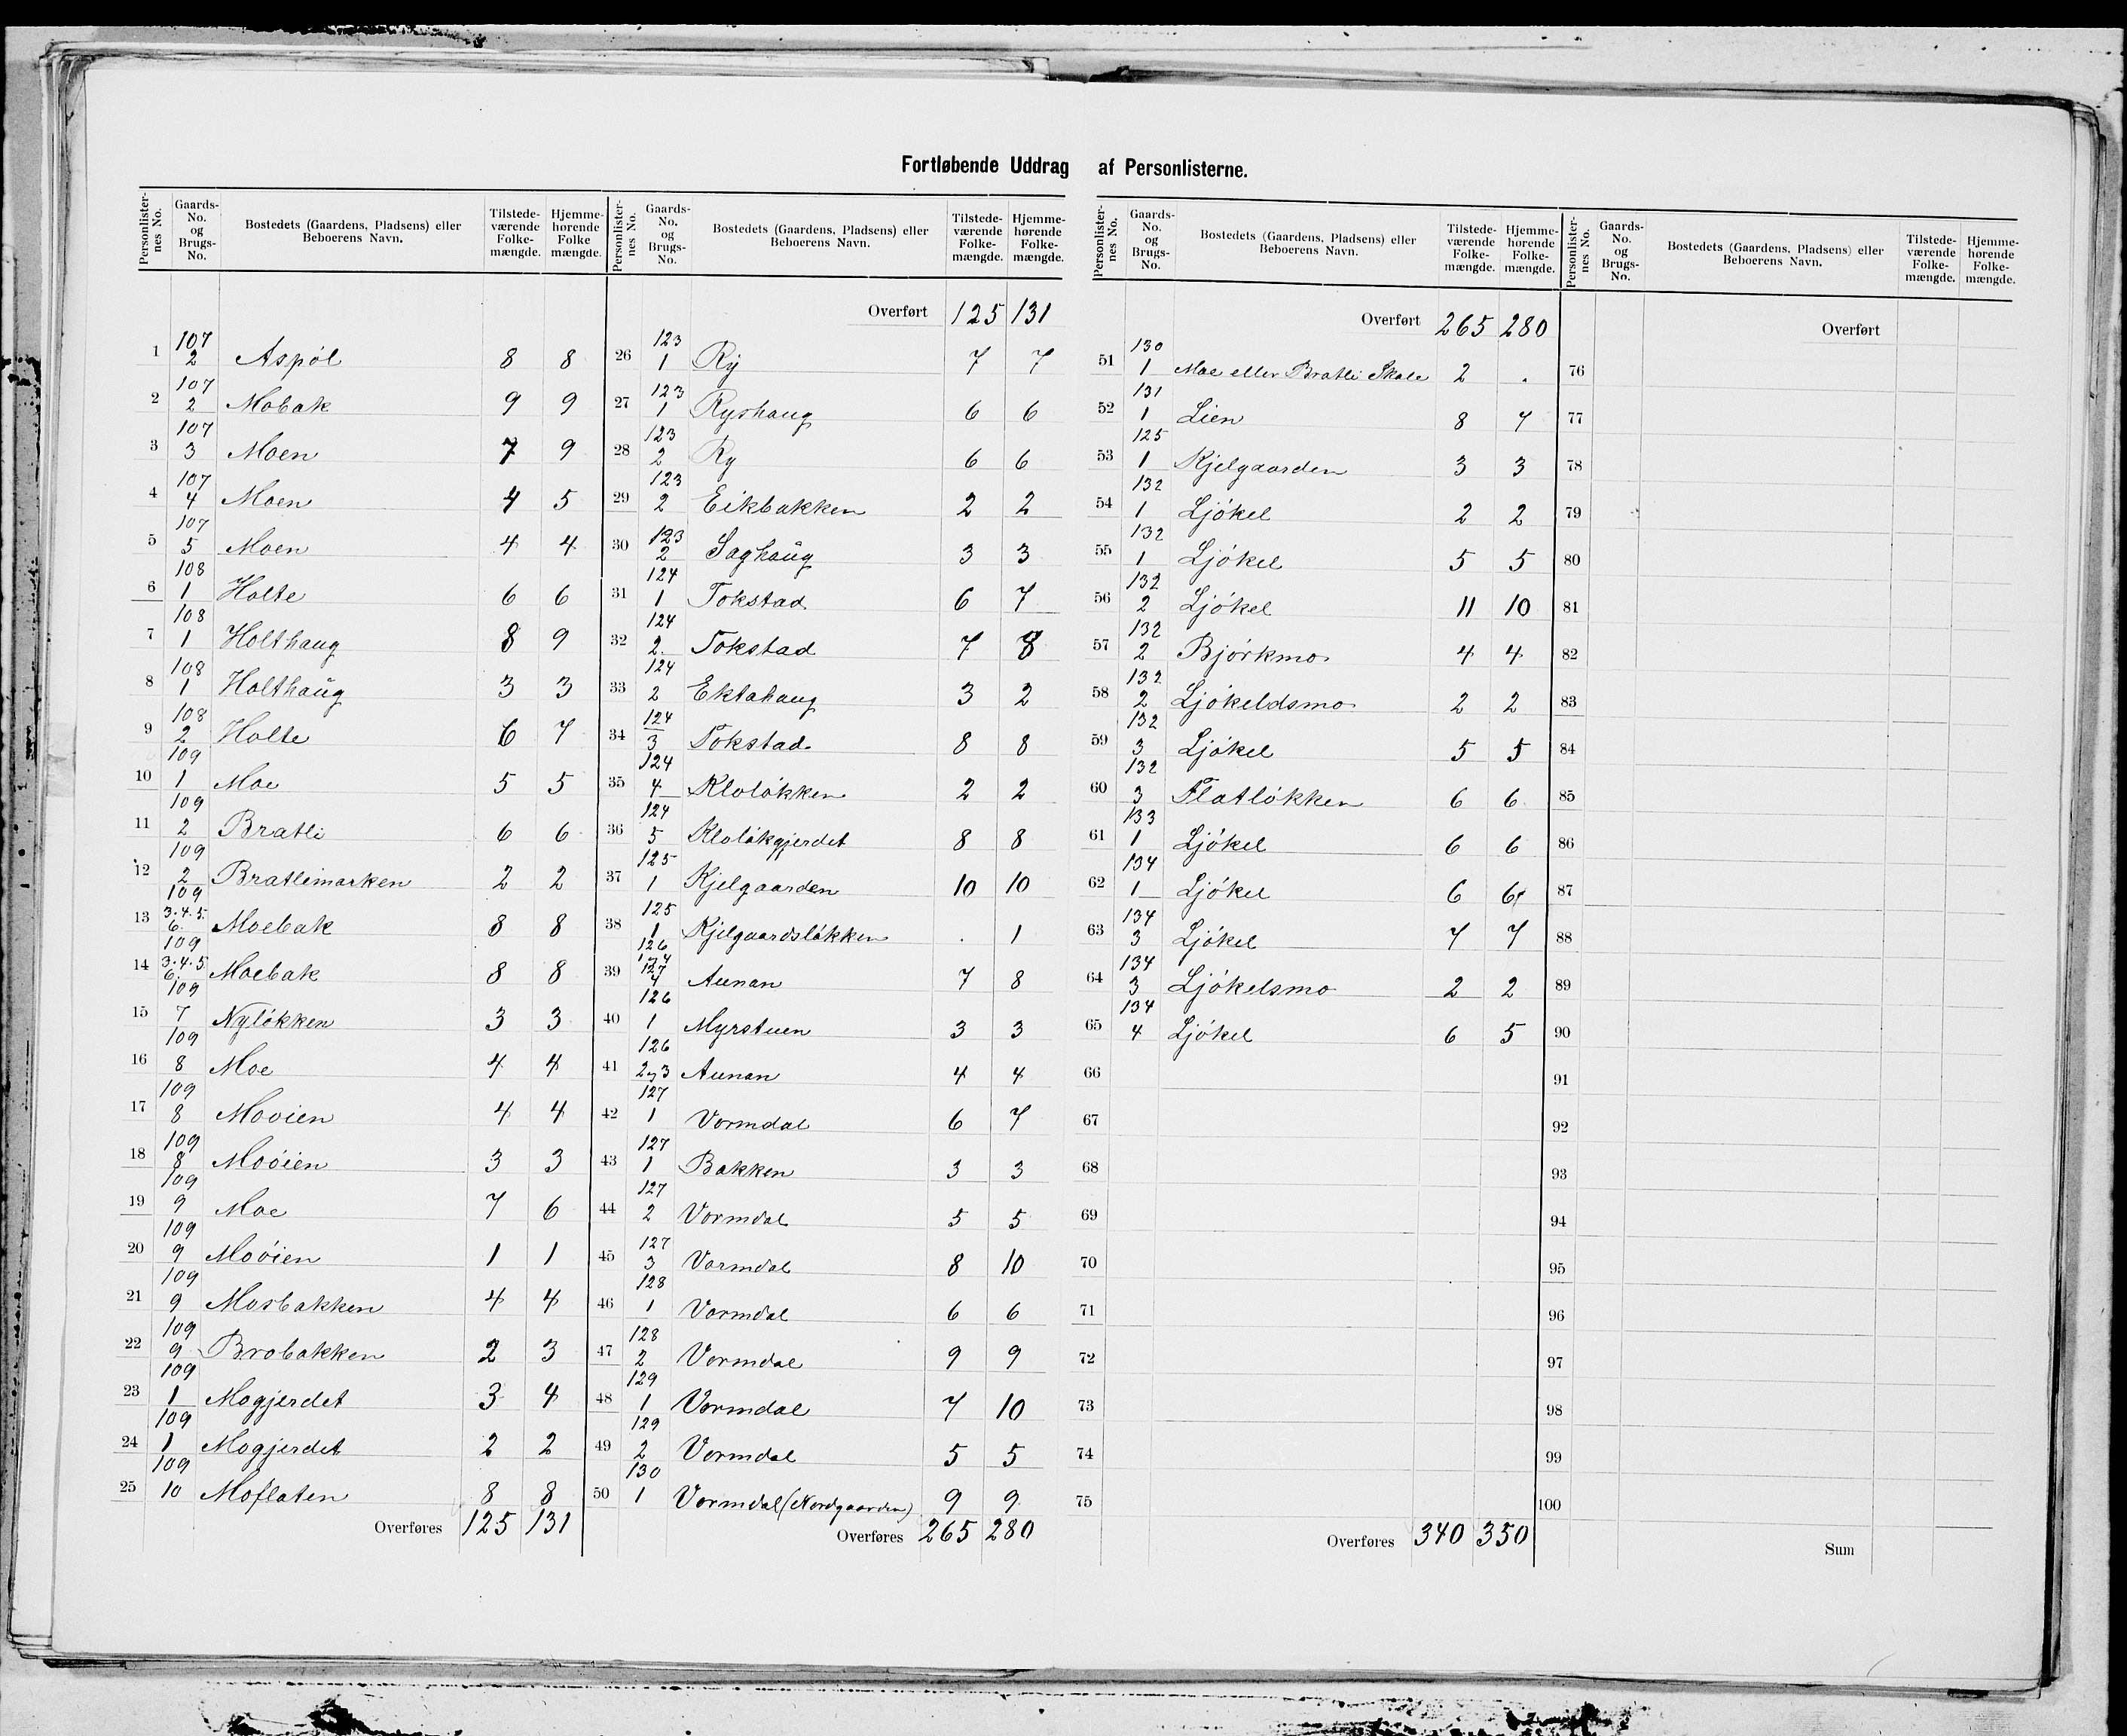 Fortløbende Uddrag af Personlisterne.
Personlister-nes No. Gaards-No. og Brugs-No. Bostedets (Gaardens, Pladsens) eller Beboerens Navn. Tilstede-værende Folke-mængde. Hjemme-hørende Folke mængde.
1 107 2 Aspöl 8 8
2 107 2 Mobak 9 9
3 107 3 Moen 7 9
4 107 4 Moen 4 5
5 107 5 Moen 4 4
6 108 1 Holte 6 6
7 108 1 Holthaug 8 9
8 108 1 Holthaug 3 3
9 108 2 Holte 6 7
10 109 1 Moe 5 5
11 109 2 Bratli 6 6
12 109 2 Bratlimarken 2 2
13 109 3.4.5. 6. Moebak 8 8
14 109 3.4.5. 6. Moebak 8 8
15 109 7 Nylökken 3 3
16 109 8 Moe 4 4
17 109 8 Mooien 4 4
18 109 8 Moöien 3 3
19 109 9 Moe 7 6
20 109 9 Moöien 1 1
21 109 9 Mosbakken 4 4
22 109 9 Brobakken 2 3
23 109 1 Mogjerdet 3 4
24 109 1 Mogjerdet 2 2
25 109 10 Moflaten 8 8
Overføres 125 131
Personlister-nes No. Gaards-No. og Brugs-No. Bostedets (Gaardens, Pladsens) eller Beboerens Navn. Tilstede-værende Folke-mængde. Hjemme-hørende Folke-mængde.
Overført 125 131
26 123 1 Ry 7 7
27 123 1 Ryshaug 6 6
28 123 2 Ry 6 6
29 123 2 Eikbakken 2 2
30 123 2 Saghaug 3 3
31 124 1 Tokstad 6 7
32 124 2 Tokstad 7 8
33 124 2 Ektahaug 3 2
34 124 3 Tokstad 8 8
35 124 4 Klolökken 2 2
36 124 5 Klolökgjerdet 8 8
37 125 1 Kjelgaarden 10 10
38 125 1 Kjelgaardslökken . 1
39 126 127 4 Aunan 7 8
40 126 1 Myrstuen 3 3
41 126 2 og 3 Aunan 4 4
42 127 1 Vormdal 6 7
43 127 1 Bakken 3 3
44 127 2 Vormdal 5 5
45 127 3 Vormdal 8 10
46 128 1 Vormdal 6 6
47 128 2 Vormdal 9 9
48 129 1 Vormdal 7 10
49 129 2 Vormdal 5 5
50 130 1 Vormdal (Nordgaarden) 9 9
Overføres 265 280
Personlister-nes No. Gaards-No. og Brugs-No. Bostedets (Gaardens, Pladsens) eller Beboerens Navn. Tilstede-værende Folke-mængde. Hjemme-hørende Folke-mængde.
Overført 265 280
51 130 1 Moe eller Bratli Skole 2 .
52 131 1 Lien 8 7
53 125 1 Kjelgaarden 3 3
54 132 1 Ljökel 2 2
55 132 1 Ljökel 5 5
56 132 2 Ljökel 11 10
57 132 2 Bjørkmo 4 4
58 132 2 Ljökeldsmo 2 2
59 132 3 Ljökel 5 5
60 132 3 Flatlökken 6 6
61 133 1 Ljökel 6 6
62 134 1 Ljökel 6 6
63 134 3 Ljökel 7 7
64 134 3 Ljökelsmo 2 2
65 134 4 Ljökel 6 5
66
67
68
69
70
71
72
73
74
75
Overføres 340 350
Personlister-nes No. Gaards-No. og Brugs-No. Bostedets (Gaardens, Pladsens) eller Beboerens Navn. Tilstede-værende Folke-mængde. Hjemme-hørende Folke-mængde.
Overført
76
77
78
79
80
81
82
83
84
85
86
87
88
89
90
91
92
93
94
95
96
97
98
99
100
Sum